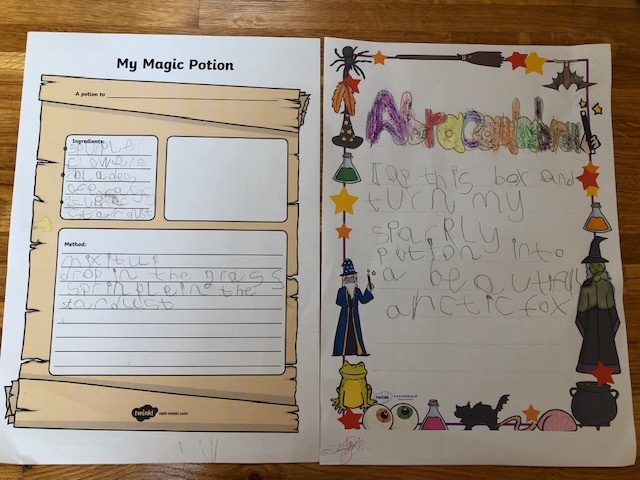 My Magic Potion
A potion to
Ingredients:
flowers
blades
stardust
Method:
mix it up
drop in the grass
sprinple in the
stardust
twinkl visit twinkl.com
Abracadabra
I tap this box and
turn my
sparkly
potion into
a
arctic fox
twinkl